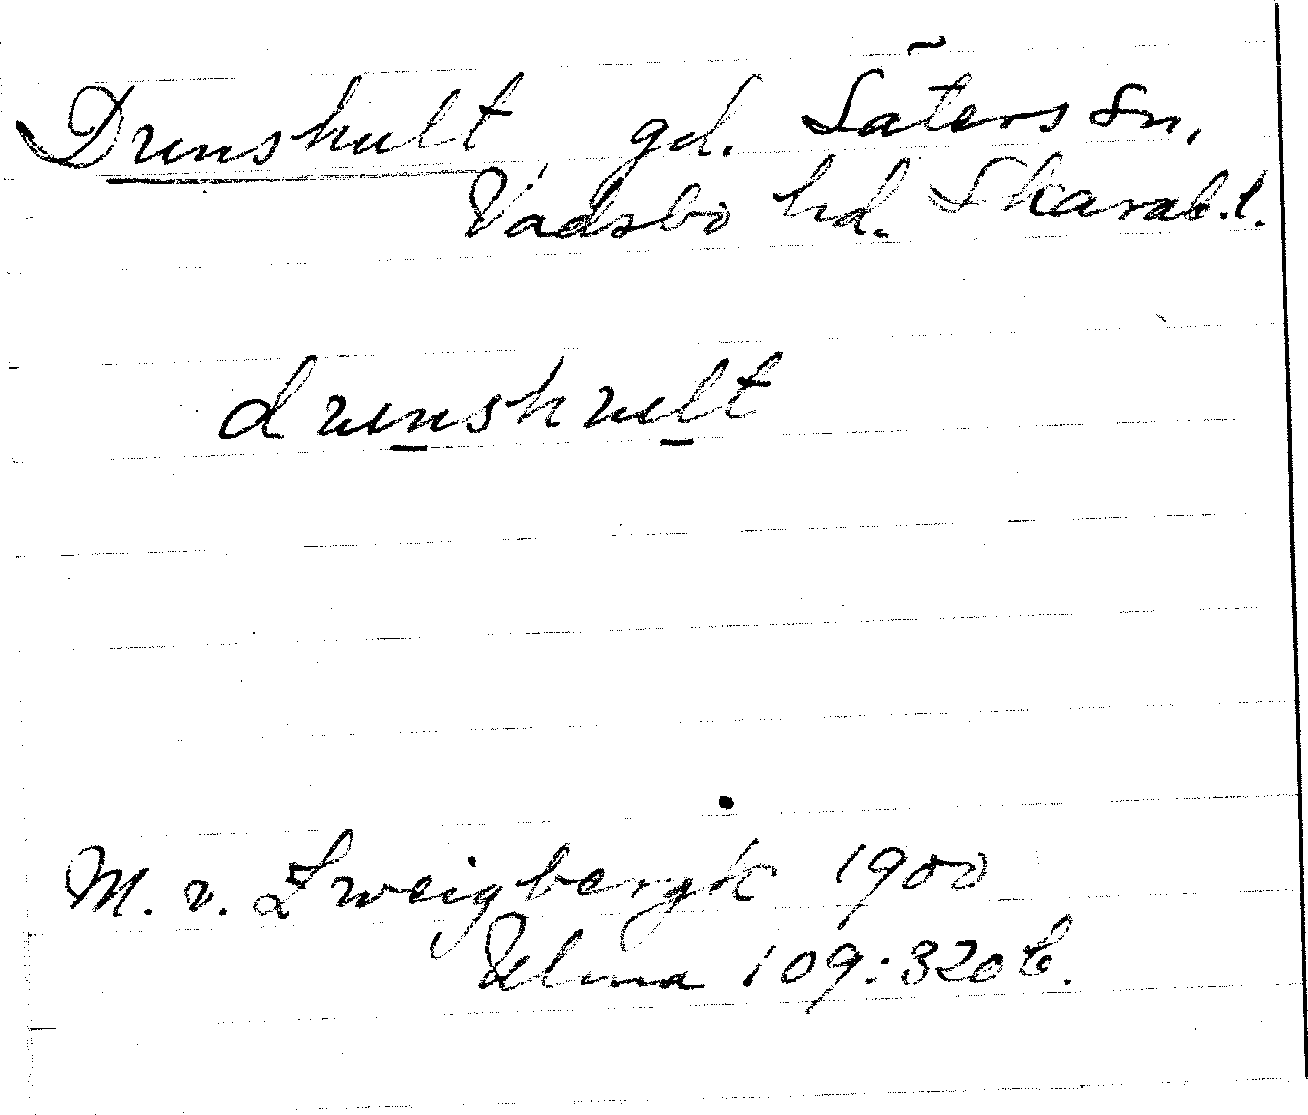 Drunshult, gd. Säters sn,
Vadsbo hd. Skarab.l.
drunshult
M. v. Zweigbergk 1900
Ulma 109:320 b.